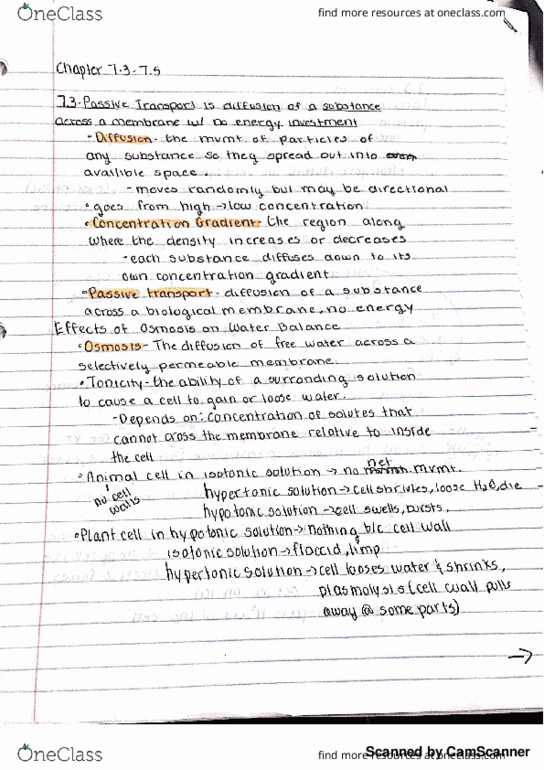 OneClass
find more resources at oneclass.com
Chapter 7.3-7.5
7.3-Passive Transport is diffusion of a substance
across a membrane w/ no energy investment
-Diffusion- the mvmt of particles of
any substance so they spread out into
availible space.
-moves randomly but may be directional
•goes from high→low concentration
•Concentration Gradient- the region along
where the density increases or decreases
-each substance diffuses down to its
own concentration gradient
•Passive transport- diffusion of a substance
across a biological membrane, no energy
Effects of Osmosis on Water Balance
•Osmosis- The diffusion of free water across a
selectively permeable membrane.
•Tonicity-the ability of a surronding solution
to cause a cell to gain or loose water.
-Depends on: concentration of solutes that
cannot cross the membrane relative to inside
the cell
•Animal cell in isotonic solution → no net mvmt.
no cell
walls
hypertonic solution→cell shrivles, loose H2O, die
hypotonic solution→cell swells, bursts,
•Plant cell in hypotonic solution→nothing b/c cell wall
isotonic solution→flaccid, limp
hypertonic solution→cell looses water & shrinks,
plasmolysis (cell wall pulls
away @ some parts)
→
OneClass
find more resources at oneclass.com
Scanned by CamScanner